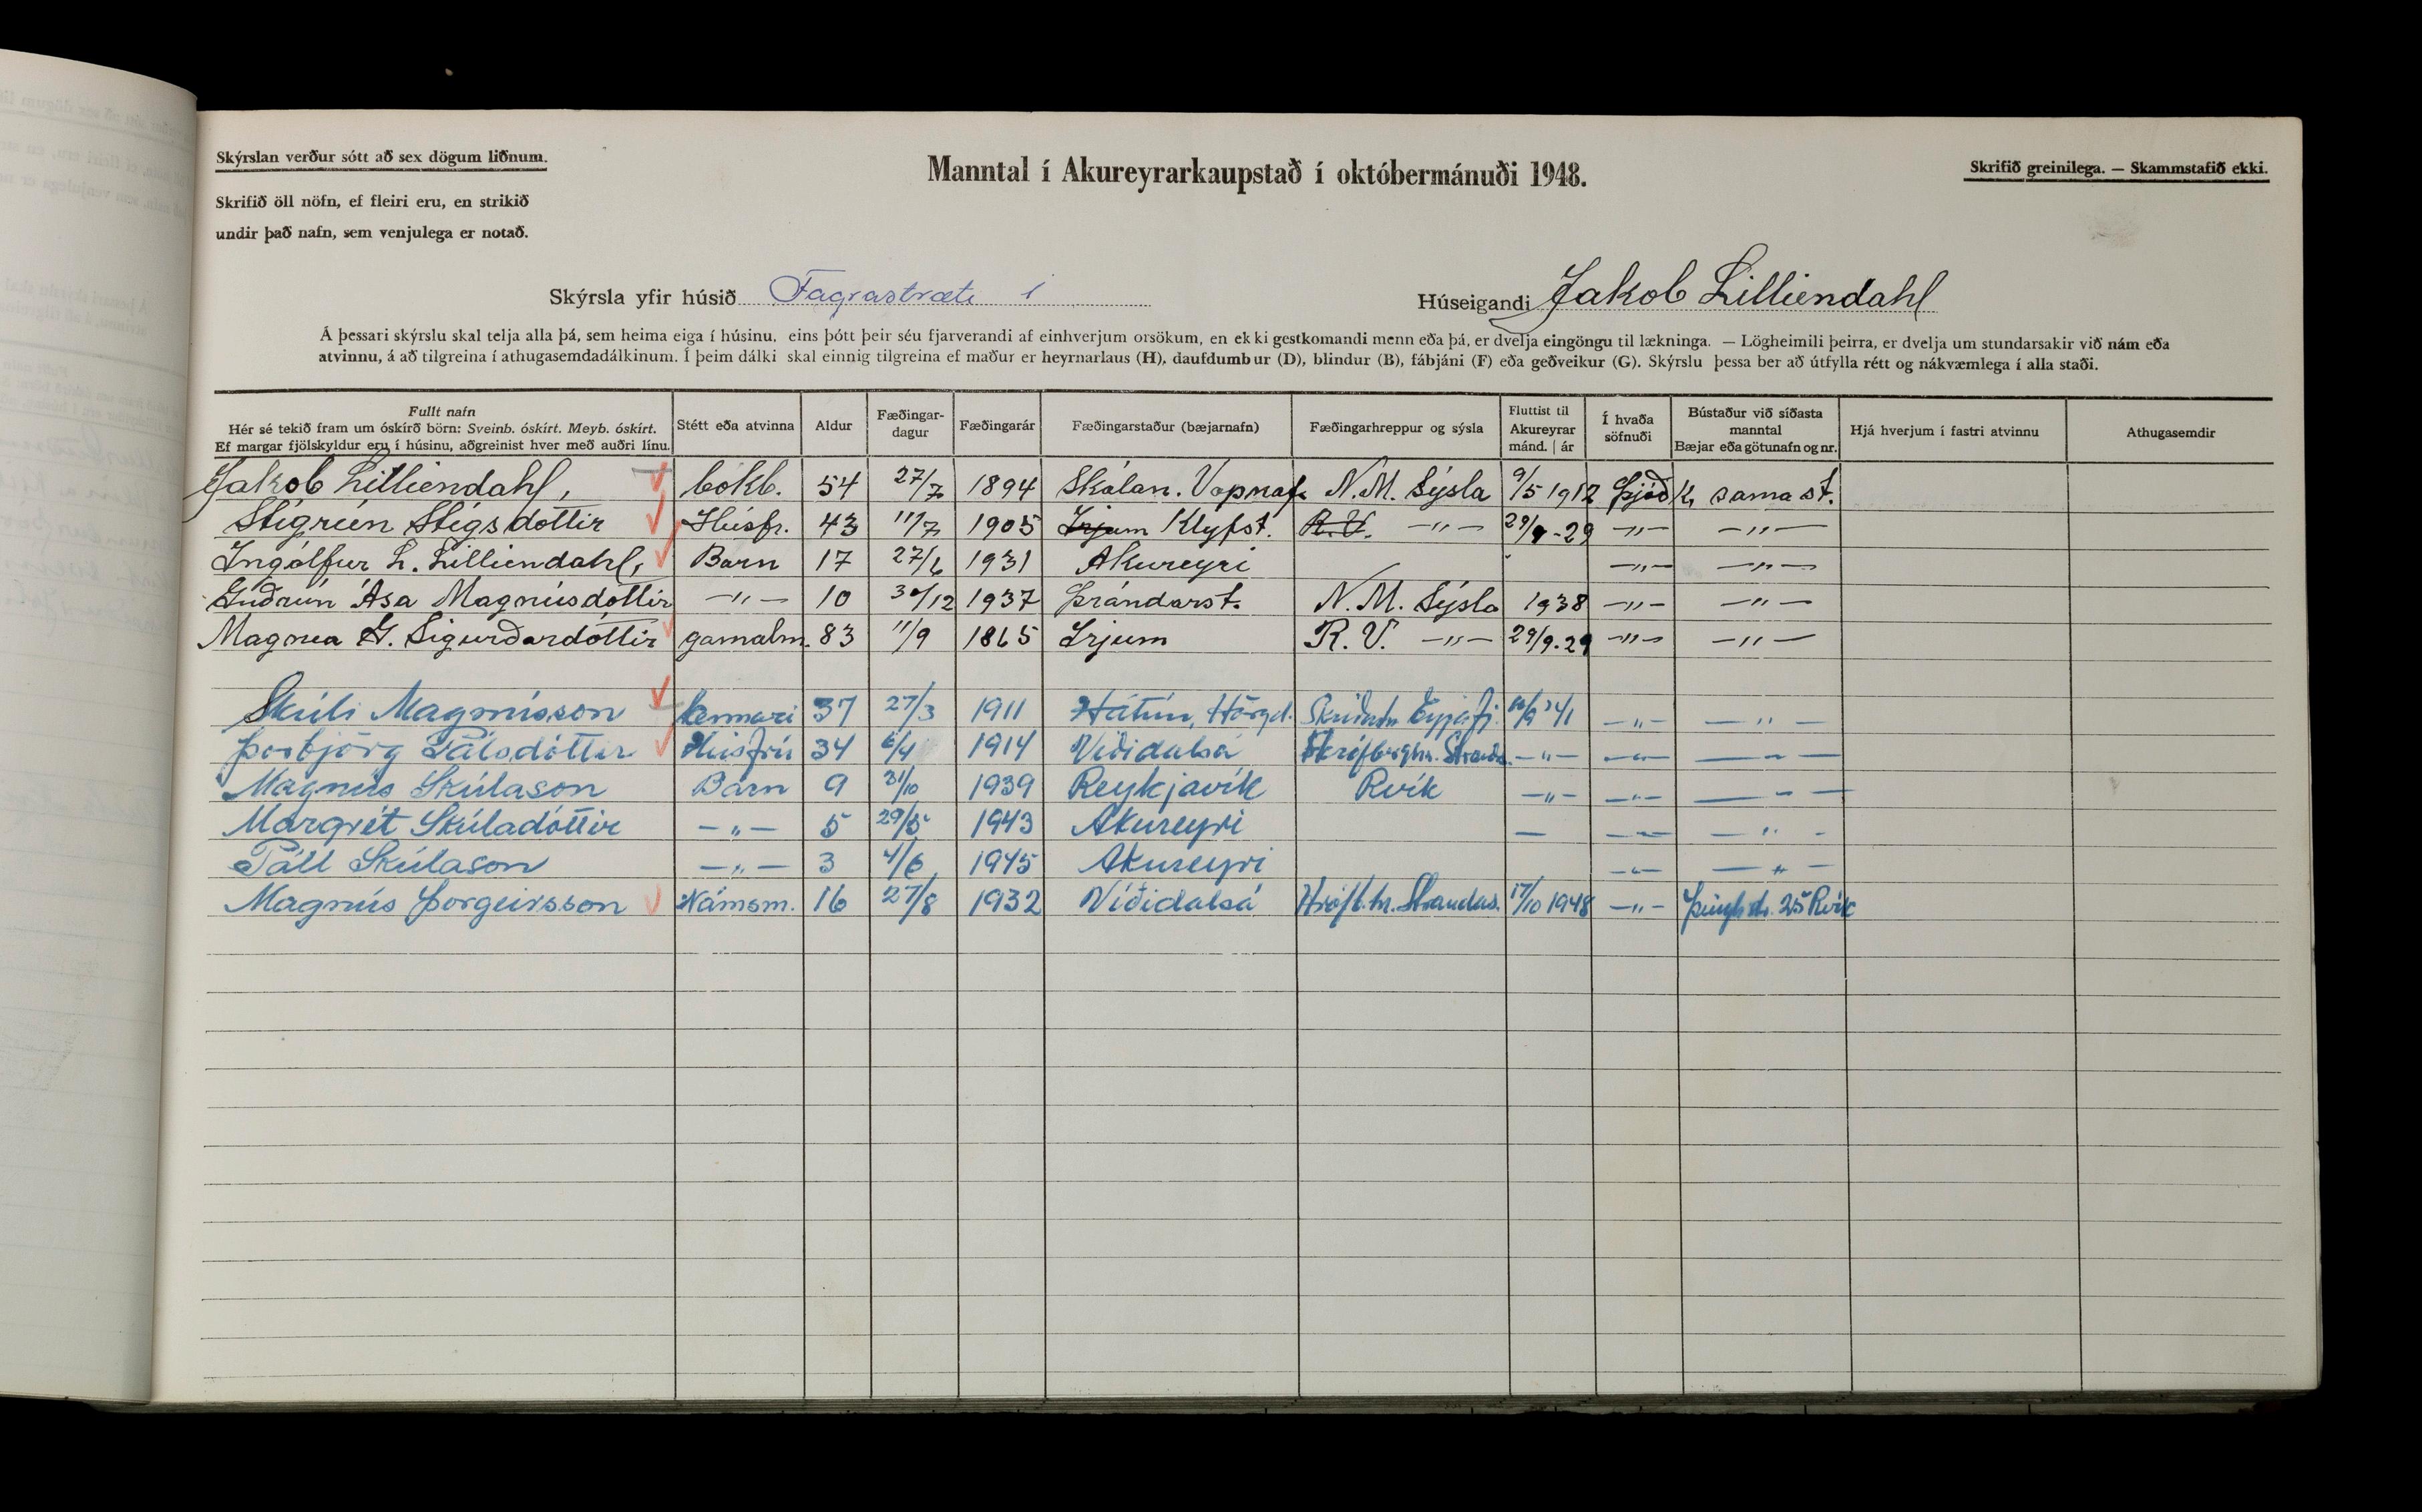 Skýrslan verður sótt að sex dögum liðnum.
Manntal í Akureyrarkaupstað í októbermánuði 1948.
Skrifið greinilega. — Skammstafið ekki.
Skrifið öll nöfn, ef fleiri eru, en strikið
undir það nafn, sem venjulega er notað.
Skýrsla yfir húsið Fagrastræti 1
Húseigandi Jakob Lilliendahl
Á þessari skýrslu skal telja alla þá, sem heima eiga í húsinu, eins þótt þeir séu fjarverandi af einhverjum orsökum, en ekki gestkomandi menn eða þá, er dvelja eingöngu til lækninga. — Lögheimili þeirra, er dvelja um stundarsakir við nám eða
atvinnu, á að tilgreina í athugasemdadálkinum. Í þeim dálki skal einnig tilgreina ef maður er heyrnarlaus (H), daufdumbur (D), blindur (B), fábjáni (F) eða geðveikur (G). Skýrslu þessa ber að útfylla rétt og nákvæmlega í alla staði.
Fullt nafn
Hér sé tekið fram um óskírð börn: Sveinb. óskírt. Meyb. óskírt.
Ef margar fjölskyldur eru í húsinu, aðgreinist hver með auðri línu.
Stétt eða atvinna
Aldur
Fæðingar-
dagur
Fæðingarár
Fæðingarstaður (bæjarnafn)
Fæðingarhreppur og sýsla
Fluttist til
Akureyrar
mánd. | ár
Í hvaða
söfnuði
Bústaður við síðasta
manntal
Bæjar eða götunafn og nr.
Hjá hverjum í fastri atvinnu
Athugasemdir
Jakob Lilliendahl, bókb. 54 27/7 1894 Skálan. Vopnaf. N.M. Sýsla 9/5 1912 Þjóðk. sama st.
Stígrún Stígsdóttir Húsfr. 43 11/7 1905 Irjum Klyfst. R.V. —"— 29/9-29 —"— —"—
Ingólfur L. Lilliendahl, Barn 17 27/6 1931 Akureyri —"— —"—
Guðrún Ása Magnúsdóttir —"— 10 30/12 1937 Þrándarst. N.M. Sýsla 1938 —"— —"—
Magnea G. Sigurðardóttir gamalm. 83 11/9 1865 Irjum R.V. —"— 29/9.29 —"— —"—
Skúli Magnússon Kennari 37 27/3 1911 Hátún, Hörgd. Skriðuhr. Eyjafj. —"— —"—
Þorbjörg Pálsdóttir Húsfrú 34 6/4 1914 Víðidalsá Hrófbergshr. Strand. —"— —"— —"—
Magnús Skúlason Barn 9 31/10 1939 Reykjavík Rvík —"— —"— —"—
Margrét Skúladóttir —"— 5 29/5 1943 Akureyri — —"— —"—
Páll Skúlason —"— 3 4/6 1945 Akureyri —"— —"—
Magnús Þorgeirsson Námsm. 16 27/8 1932 Víðidalsá Hrófb.hr. Strandas. 17/10 1948 —"— 25 Rvík